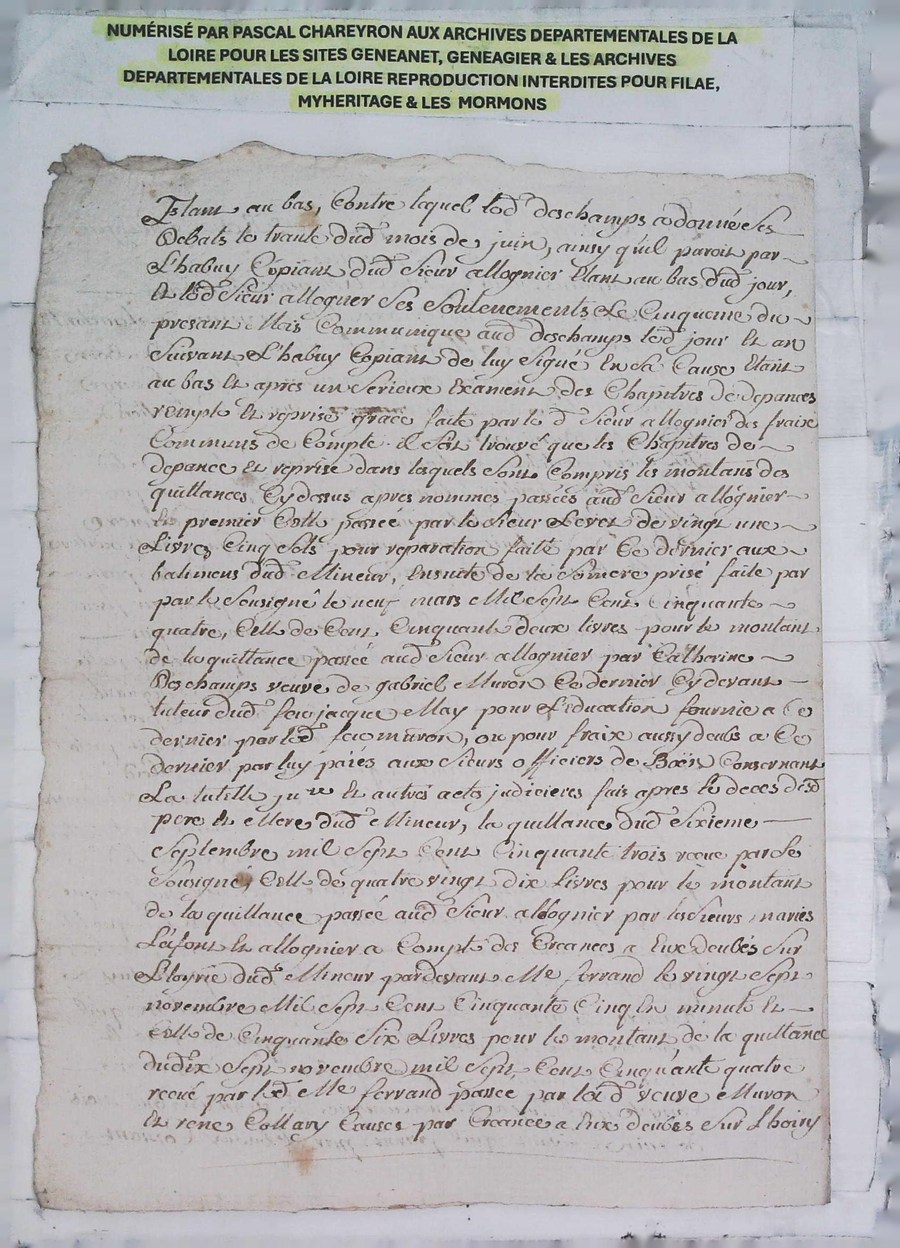 NUMÉRISÉ PAR PASCAL CHAREYRON AUX ARCHIVES DEPARTEMENTALES DE LA
LOIRE POUR LES SITES GENEANET, GENEAGIER & LES ARCHIVES
DEPARTEMENTALES DE LA LOIRE REPRODUCTION INTERDITES POUR FILAE,
MYHERITAGE & LES MORMONS
Estant au bas, Contre lequel led deschamps a donné ses
Debats le trante dud mois de juin, ainsy quil paroit par
L'habuy Copiant dud Sieur allognier Etant au bas dud jour,
Et led Sieur allognier Ses Soutenements Le Cinquieme du
presant Mois Communique aud deschamps led jour Et an
Suivant L'habuy Copiant de luy Signé En la Cause Etant
au bas Et après un Serieux Exament des Chapitres de depances
remple Et reprise grace faite par le d Sieur allognier des fraix
Communs de Comple il s'est trouvé que les Chapitres de
depance Et reprise dans lesquels Sont Compris les montans des
quittances Cy dessus apres nommés passées aud Sieur allognier
premier Celle passée par le Sieur Levet de vingt une
Livres Cinq Sols pour reparation faite par Ce dernier aux
batimens dud Mineur, Ensuite de la prisé faite par
par le Sousigné le neuf mars Mil Sept Cent Cinquante
quatre, Celle de Cent Cinquante deux livres pour le montant
de la quittance passée aud Sieur allognier par Catherine
Deschamps veuve de gabriel Muron Ce dernier Cy devant
tuteur dud feu jacque May pour L'education fournie a Ce
dernier par led feu muron, ou pour fraix aussy deubs a Ce
dernier par luy païés aux Sieurs officiers de Boën Consernant
La tutelle Et autres acts judicieres fais apres le deces desd
pere Et Mere dud Mineur, la quittance dud Sixieme
Septembre mil Sept Cent Cinquante trois recue par Le
Sousigné, Celle de quatre vingt dix Livres pour le montant
de la quittance passée aud Sieur allognier par les Sieurs mariés
Lafont Et allognier a Compte des Creances a Eux deubes Sur
L'hoyrie dud Mineur pardevant Me ferrand le vingt Sept
novembre Mil Sept Cent Cinquante Cinq En minute Et
Celle de Cinquante Six Livres pour le montant de la quittance
du dix Sept novembre mil Sept Cent Cinquante quatre
recué par led Me ferrand passée par lad veuve Muron
Et rene Collary Causes par Creance a Eux deubes Sur L'hoiry